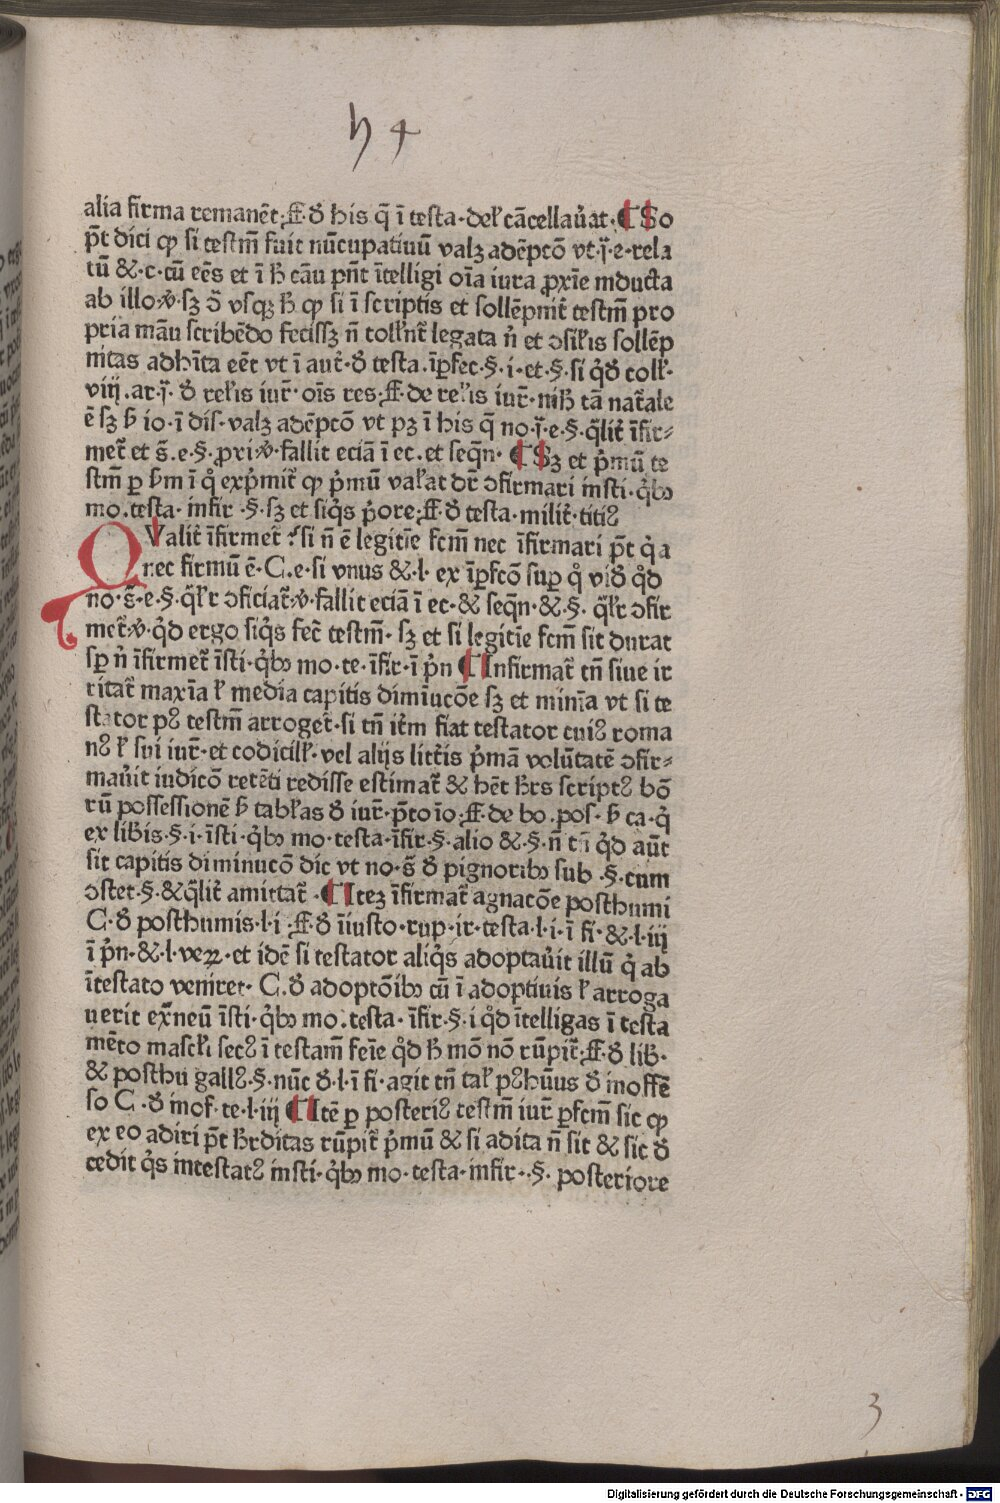 h 4
alia firma remanēt·ff·đ his q̄ ī testa·deł cācellaūat·¶ So
p̄t dici ꝙ si testm̄ fuit nūcupatiuū valꝫ adēptō vt·j̄·e·rela
tū &·c·cū eēs et ī ħ cāu pn̄t ītelligi oīa iura ꝓxīe inducta
ab illo·v̇·sꝫ ɔ̄ vsqꝫ ħ ꝙ si ī scriptis et sollēpnit̄ testm̄ pro
pria māu scribēdo fecissꝫ n̄ tolłnt̄ legata n̄ et ɔsiłis sollēp
nitas adhīta eēt vt ī aut̄·đ testa·īpfec·§·i·et·§·si q̊đ tolł·
viij·ar·j̄·đ rełis iur̄·oīs res·ff·de rełis iur̄·niħ tā nat̄ale
ē sꝫ ƀ io·ī dis·valꝫ adēptō vt pꝫ ī his q̄ no·j̄·e·§·q̄lit̄ īfir⸗
met̄ et s̄·e·§·ꝓxi·v̇·fallit eciā ī ec·et seqn̄·¶ Sꝫ et p̄mū te
stm̄ ꝑ ƀm ī q̊ exp̄mit̄ ꝙ p̄mū vałat dr̄ ɔfirmari insti·q̇bꝯ
mo·testa·infir·§·sꝫ et siq̇s p̄ore·ff·đ testa·milit̄·titiꝰ
QValit̄ īfirmet̄ ? si n̄ ē legitīe fcm̄ nec īfirmari p̄t q̇a
nec firmū ē·C·e·si vnus &·l·ex īpfcō suꝑ q̊ viđ q̊đ
no·s̄·e·§·q̄łr ɔficiat̄·v̇·fallit eciā ī ec·& seqn̄·&·§·q̄łr ɔfir
met̄·v̇·q̊đ ergo siq̇s fec̄ testm̄·sꝫ et si legitīe fcm̄ sit durat
sꝑ n̄ īfirmet̄ īsti·q̇bꝯ mo·te·īfir·ī p̄n ¶ Infirmat̄ tn̄ siue ir
ritat̄ maxīa ł media capitis dimīucōe sꝫ et minīa vt si te
stator pꝰ testm̄ arroget̄·si tn̄ itm̄ fiat testator ciuis roma
nꝰ ł sui iur̄·et codicilł·vel alijs litt̄is p̄mā volūtatē ɔfir⸗
maūit iudicō retēti redisse estimat̄ & hēt ħrs scriptꝰ bō
rū possessionē ƀ tabłas đ iur̄·p̄to īo·ff·de bo·pos·ƀ ca·q̇
ex libis·§·i·īsti·q̇bꝯ mo·testa·īfir·§·alio &·§·n̄ tn̄ q̊đ aūt
sit capitis diminucō dic vt no·s̄·đ pignoribꝯ sub·§·cum
ɔstet·§·&q̄lit̄ amittat̄·¶ Iteꝫ īfirmat̄ agnacōe posthumi
C·đ posthumis·l·i·ff·đ īiusto·rup·ir·testa·l·i·ī fi·&·l·iij
ī p̄n·&·l·veꝝ·et idē si testator aliq̇s adoptaūit illū q̇ ab
ītestato veniret·C·đ adoptōibꝯ cū ī adoptiuis ł arroga
uerit exn̄eū īsti·q̇bꝯ mo·testa·īfir·§·i q̊đ ītelligas ī testa
mēto mascłi secꝰ ī testam̄ feīe q̊đ ħ mō nō rūpit̄·ff·đ lib̄·
& posthu gallꝰ·§·nūc đ·l·ī fi·agit tn̄ tał pꝰhūus đ inoffē
so C·đ inof·te·l·iij ¶ Itē ꝑ posteriꝰ testm̄ iur̄ ꝑfcm̄ sic ꝙ
ex eo adiri p̄t ħrditas rūpit̄ p̄mū & si adita n̄ sit & sic đ
cedit q̇s intestatꝰ insti·q̇bꝯ mo·testa·infir·§·posteriore
3
Digitalisierung gefördert durch die Deutsche Forschungsgemeinschaft - DFG